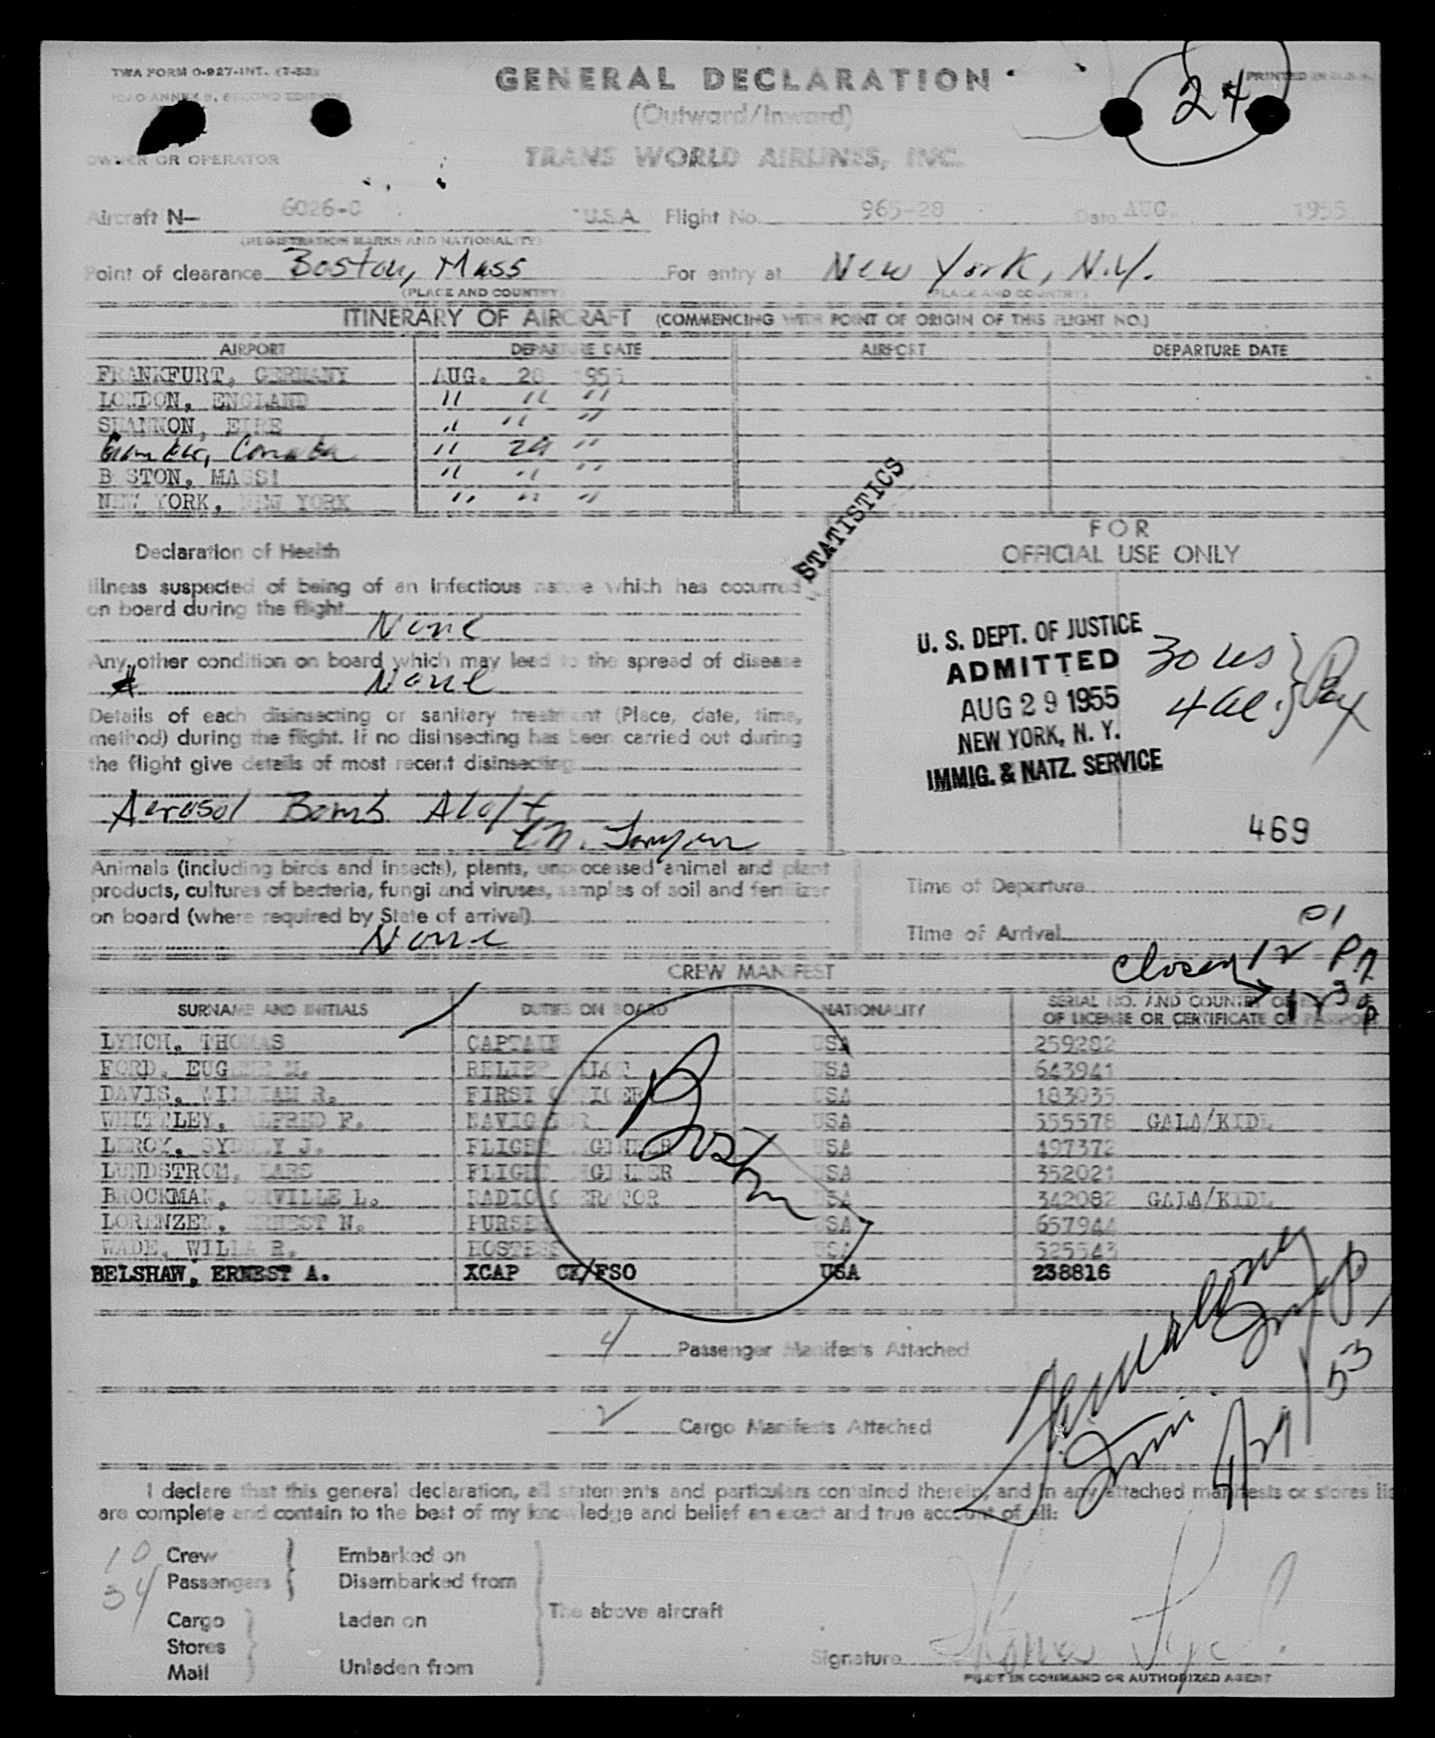 TWA FORM O-927-INT. (7-53)
ICAO ANNEX 9, SECOND EDITION
GENERAL DECLARATION
(Outward/Inward)
PRINTED IN U.S.A.
24
OWNER OR OPERATOR
TRANS WORLD AIRLINES, INC.
Aircraft N— 6026-C U.S.A. Flight No. 965-28 Date AUG. 1955
(REGISTRATION MARKS AND NATIONALITY)
Point of clearance Boston, Mass For entry at New York, N.Y.
(PLACE AND COUNTRY) (PLACE AND COUNTRY)
ITINERARY OF AIRCRAFT (COMMENCING WITH POINT OF ORIGIN OF THIS FLIGHT NO.)
AIRPORT DEPARTURE DATE AIRPORT DEPARTURE DATE
FRANKFURT, GERMANY AUG. 28 1955
LONDON, ENGLAND " " "
SHANNON, EIRE " " "
Gander, Canada " 29 "
BOSTON, MASS " " "
NEW YORK, NEW YORK " " "
STATISTICS
FOR
OFFICIAL USE ONLY
Declaration of Health
Illness suspected of being of an infectious nature which has occurred
on board during the flight
None
Any other condition on board which may lead to the spread of disease
None
Details of each disinsecting or sanitary treatment (Place, date, time,
method) during the flight. If no disinsecting has been carried out during
the flight give details of most recent disinsecting
Aerosol Bomb Aloft
U. S. DEPT. OF JUSTICE
ADMITTED
AUG 29 1955
NEW YORK, N. Y.
IMMIG. & NATZ. SERVICE
30 US
4 al. } Pax
469
Animals (including birds and insects), plants, unprocessed animal and plant
products, cultures of bacteria, fungi and viruses, samples of soil and fertilizer
on board (where required by State of arrival)
None
Time of Departure
Time of Arrival 1201 P
Closed
CREW MANIFEST
SURNAME AND INITIALS DUTIES ON BOARD NATIONALITY SERIAL NO. AND COUNTRY OF
OF LICENSE OR CERTIFICATE OR PASSPORT
LYNCH, THOMAS CAPTAIN USA 259282
FORD, EUGENE M. RELIEF PILOT USA 643941
DAVIS, WILLIAM R. FIRST OFFICER USA 183035
WHITTLEY, ALFRED F. NAVIGATOR USA 555578 GALA/KIDL
LEROY, SYDNEY J. FLIGHT ENGINEER USA 497372
LUNDSTROM, LARS FLIGHT ENGINEER USA 352021
BROCKMAN, ORVILLE L. RADIO OPERATOR USA 342082 GALA/KIDL
LORENZEN, ERNEST N. PURSER USA 657944
WADE, WILLA R. HOSTESS USA 525543
BELSHAW, ERNEST A. XCAP CK/FSO USA 238816
Boston
4 Passenger Manifests Attached
2 Cargo Manifests Attached
I declare that this general declaration, all statements and particulars contained therein, and in any attached manifests or stores lis
are complete and contain to the best of my knowledge and belief an exact and true account of all:
10 Crew
34 Passengers
Embarked on
Disembarked from
Cargo
Stores
Mail
Laden on
Unladen from
The above aircraft
Signature Thomas Lynch
PILOT IN COMMAND OR AUTHORIZED AGENT